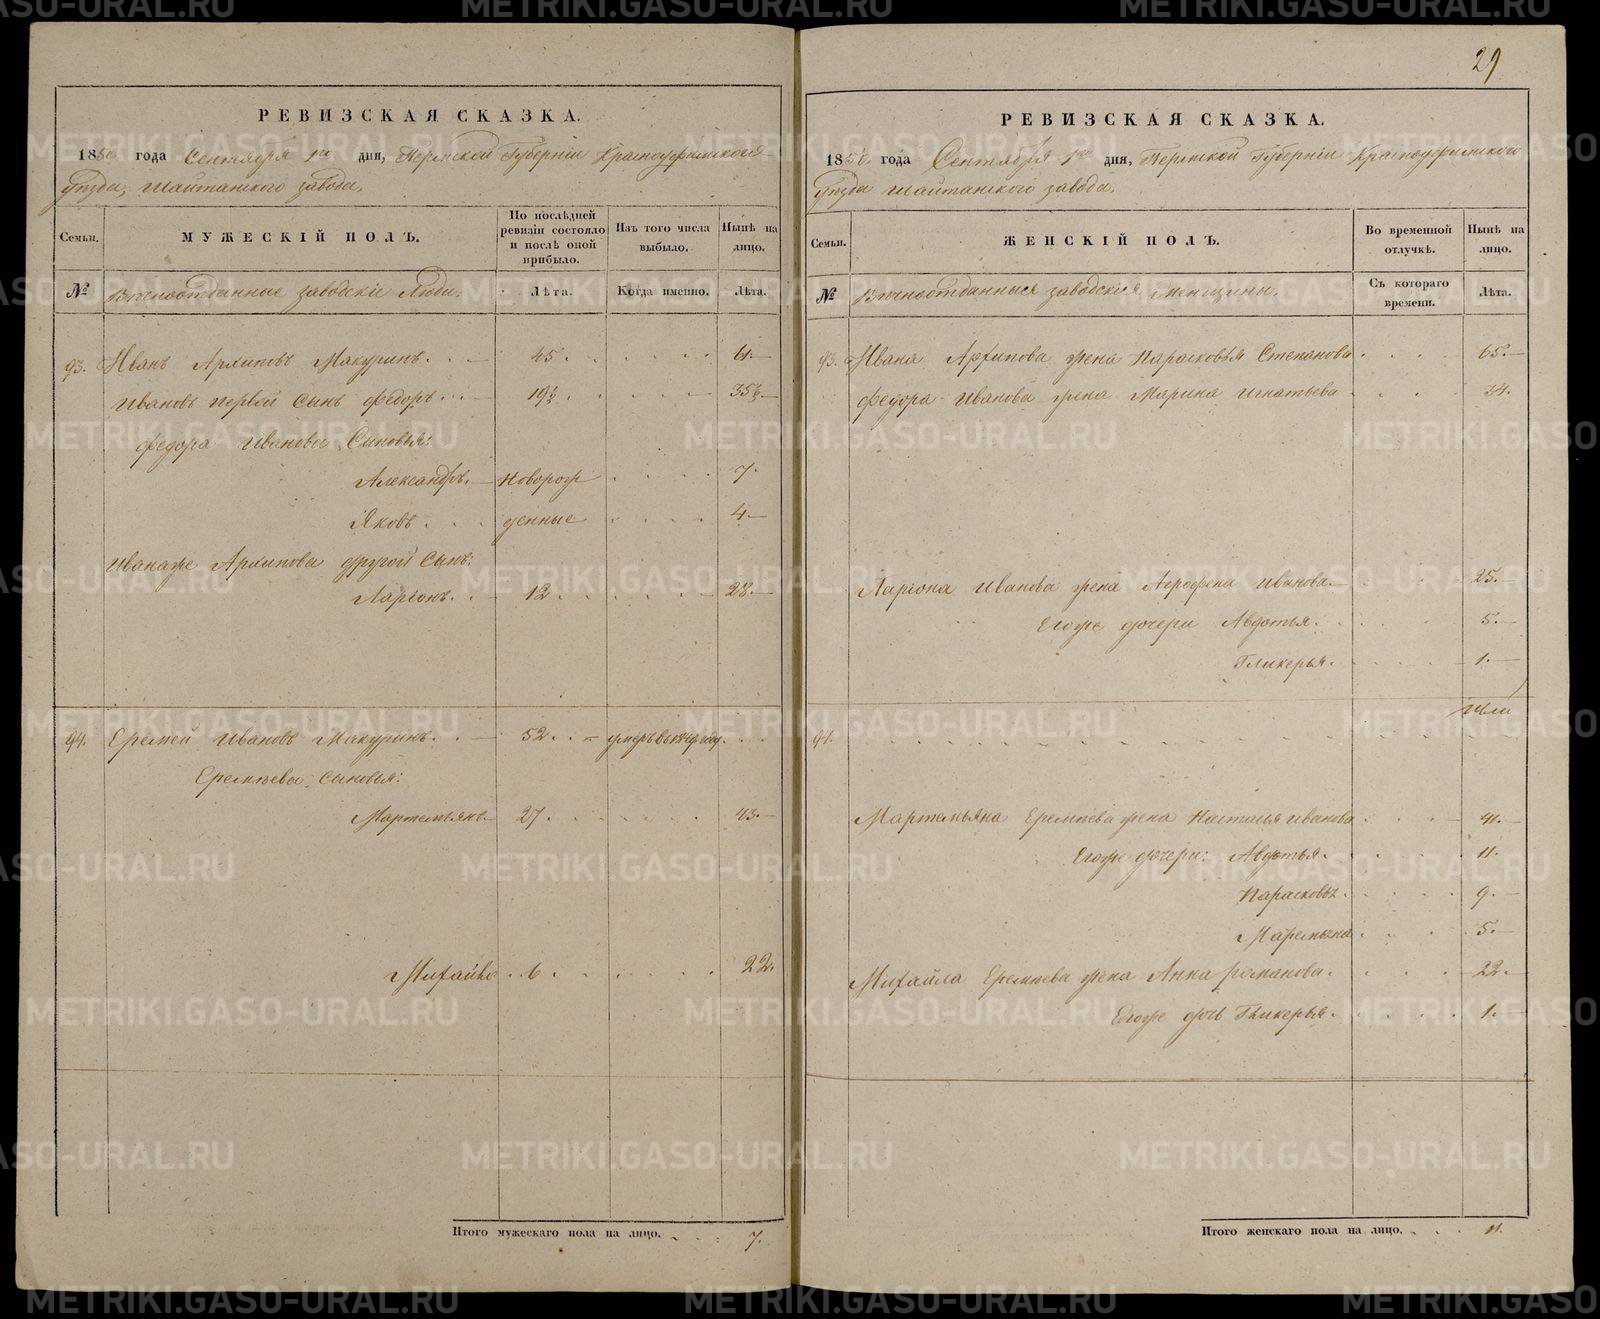 29
РЕВИЗСКАЯ СКАЗКА.
1850 года Сентября 1го дня, Пермской Губерніи Красноуфимскаго
уѣзда, Шайтанского завода.
Семьи.
МУЖЕСКІЙ ПОЛЪ.
По послѣдней ревизіи состояло и послѣ оной прибыло.
Изъ того числа выбыло.
Нынѣ на лицо.
№
Вѣчноотданные заводскіе Люди.
Лѣта.
Когда именно.
Лѣта.
93. Иванъ Архиповъ Макуринъ. 45. 61.
Ивановъ первой сынъ Федоръ. 19½ 35½.
Федора Иванова Сыновья:
Александръ. Новорож 7.
Яковъ. денные 4.
Иванаже Архипова другой сынъ:
Ларіонъ. 12. 28.
94. Еремей Ивановъ Макуринъ. 52. умеръ въ году.
Еремѣева сыновья:
Мартемьянъ 27. 43.
Михайло 6. 22.
Итого мужескаго пола на лицо. 7.
РЕВИЗСКАЯ СКАЗКА.
1850 года Сентября 1го дня, Пермской Губерніи Красноуфимского
уѣзда Шайтанского завода.
Семьи.
ЖЕНСКІЙ ПОЛЪ.
Во временной отлучкѣ.
Нынѣ на лицо.
№
Вѣчноотданныя заводскія Женщины.
Съ котораго времени.
Лѣта.
93. Ивана Архипова жена Парасковья Степанова 65.
Федора Иванова жена Марина Игнатьева 34.
Ларіона Иванова жена Агрофена Иванова. 25.
Егоже дочери Авдотья. 5.
Гликерья. 1.
94.
Мартемьяна Еремѣева жена Настасья Иванова 41.
Егоже дочери: Авдотья. 11.
Парасковья. 9.
Маремьяна 5.
Михайла Еремѣева жена Анна Романова. 22.
Егоже дочь Гликерья. 1.
Итого женскаго пола на лицо. 11.
METRIKI.GASO-URAL.RU